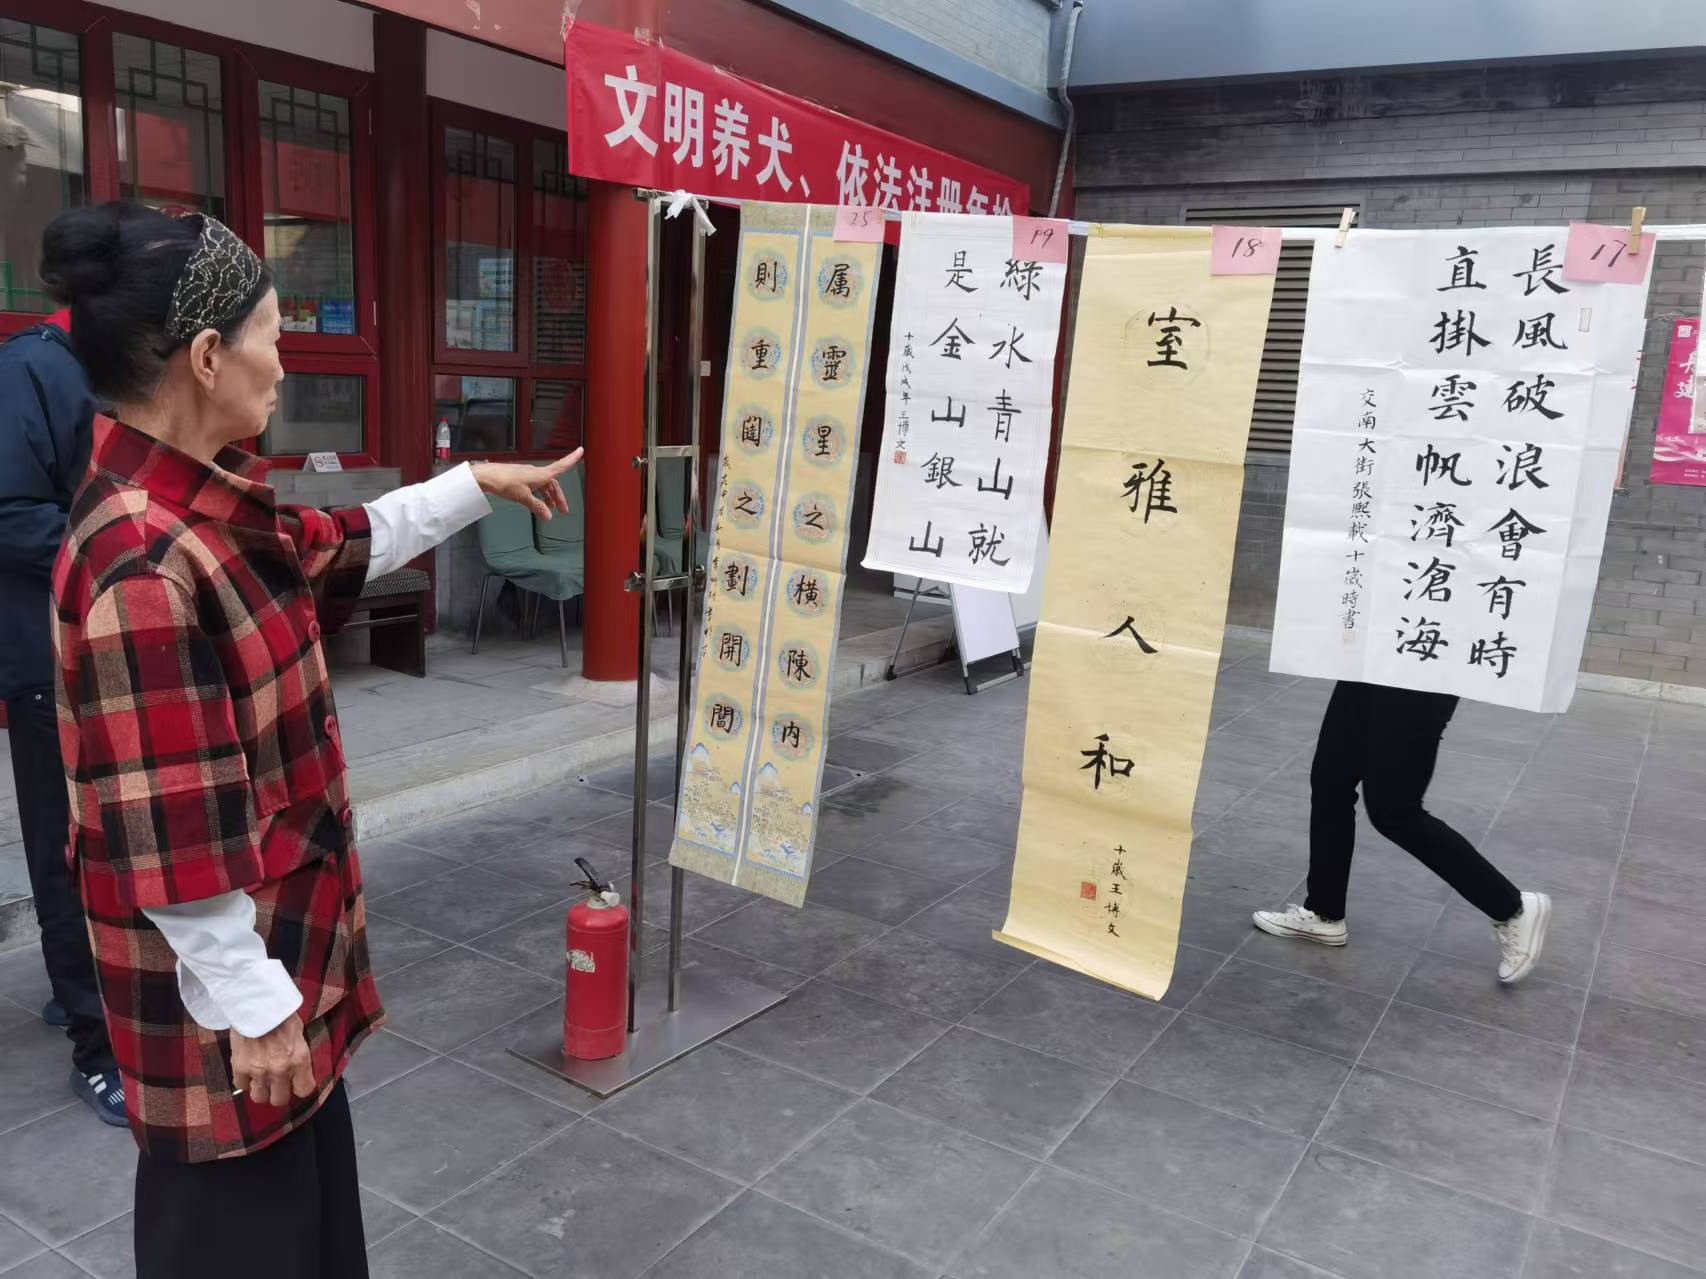 文明养犬、依法注册年检
25
属靈星之橫陳内
則重闥之劃開闇
19
綠水青山就
是金山銀山
十歲戊戌年王博文
18
室雅人和
十歲王博文
17
長風破浪會有時
直掛雲帆濟滄海
交南大街張熙載十歲時書